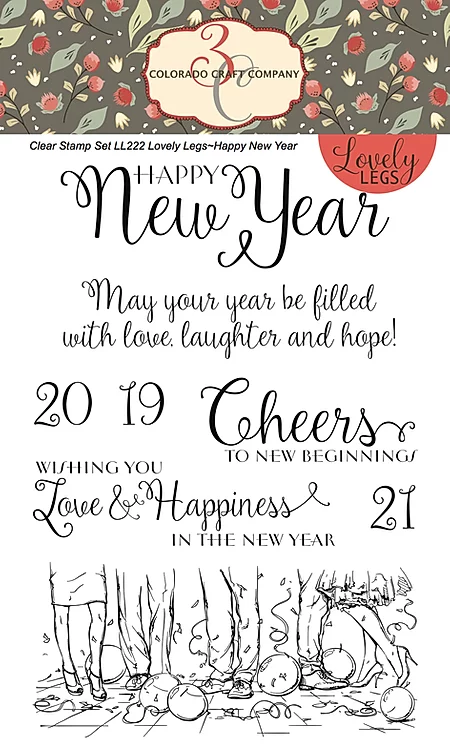 3C
COLORADO CRAFT COMPANY
Clear Stamp Set LL222 Lovely Legs~Happy New Year
Lovely
LEGS
HAPPY
New Year
May your year be filled
with love, laughter and hope!
20 19
Cheers
TO NEW BEGINNINGS
WISHING YOU
Love & Happiness
21
IN THE NEW YEAR